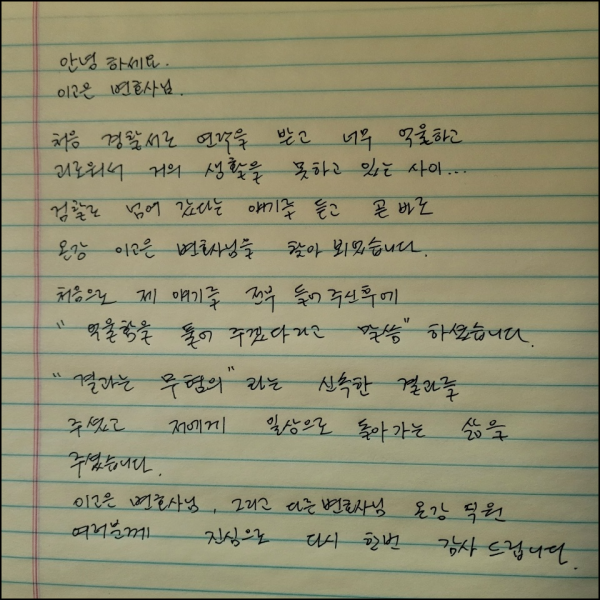 안녕 하세요.
이고은 변호사님.
처음 경찰서로 연락을 받고 너무 억울하고
괴로워서 거의 생활을 못하고 있는 사이...
검찰로 넘어 갔다는 얘기를 듣고 곧 바로
온강 이고은 변호사님을 찾아 뵈었습니다.
처음으로 제 얘기를 전부 들어 주신후에
"억울함을 풀어 주겠다라고 말씀" 하셨습니다.
"결과는 무혐의" 라는 신속한 결과를
주셨고 저에게 일상으로 돌아가는 삶을
주셨습니다.
이고은 변호사님, 그리고 다른 변호사님 온강 직원
여러분께 진심으로 다시 한번 감사 드립니다.